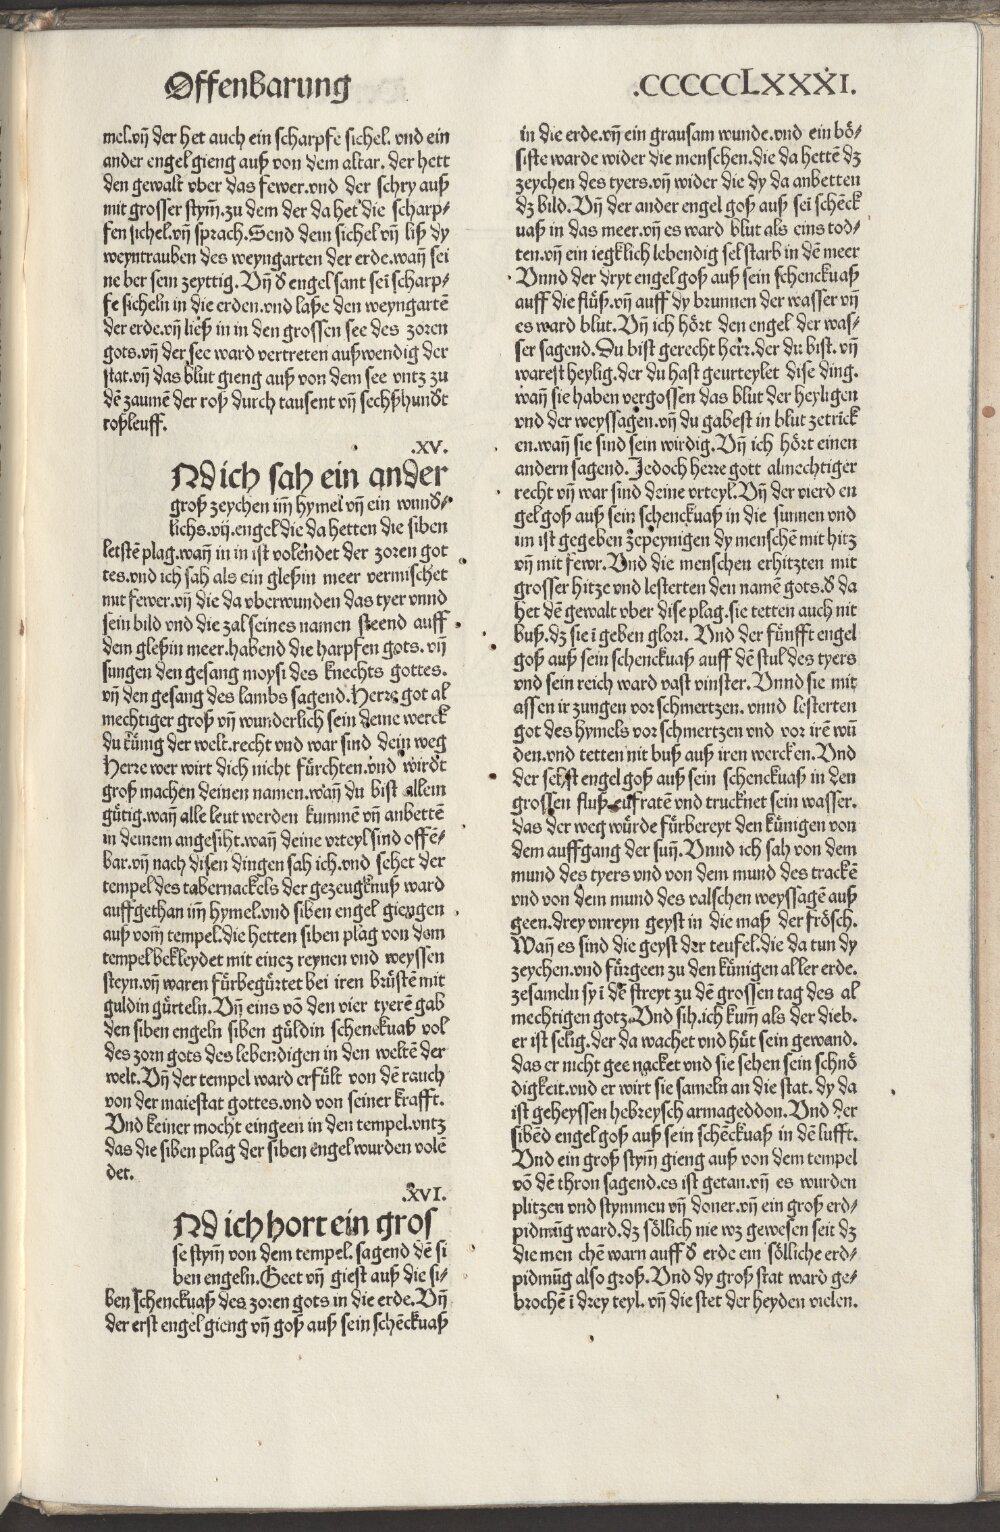 Offenbarung
.CCCCCCLXXXXI.
mel.vñ der het auch ein scharpfe sichel. vnd ein
ander engel gieng auß von dem altar. der hett
den gewalt vber das fewer.vnd der schry auß
mit grosser stym̃.zu dem der da het die scharp⸗
fen sichel.vñ sprach.Send dem sichel vñ liß dy
weyntrauben des weyngarten der erde.wañ sei
ne ber sein zeyttig. Vñ d̕ engel sant sei scharp⸗
fe sicheln in die erden.vnd laße den weyngartẽ
der erde.vñ ließ in in den grossen see des zoren
gots.vñ der see ward vertreten außwendig der
stat.vñ das blut gieng auß von dem see vntz zu
dẽ zaumẽ der roß durch tausent vñ sechßhund̕t
roßleuff.
.XV.
ND ich sah ein ander
groß zeychen im̃ hymel vñ ein wund̕⸗
lichs.vij.engel die da hetten die siben
letstẽ plag.wañ in in ist volendet der zoren got
tes.vnd ich sah als ein gleßin meer vermischet
mit fewer.vñ die da vberwunden das tyer vnnd
sein bild vnd die zal seines namen steend auff
dem gleßin meer.habend die harpfen gots. vñ
sungen den gesang moysi des knechts gottes.
vñ den gesang des lambs sagend.Herre got al
mechtiger groß vñ wunderlich sein deine werck
du küͤnig der welt.recht vnd war sind dein weg
Herre wer wirt dich nicht füͤrchten.vnd wird̕t
groß machen deinen namen.wañ du bist allein
güͤtig.wañ alle leut werden kummẽ vñ anbettẽ
in deinem angesiht.wañ deine vrteyl sind offẽ⸗
bar.vñ nach disen dingen sah ich.vnd sehet der
tempel des tabernackels der gezeugknuß ward
auffgethan im̃ hymel.vnd siben engel giengen
auß vom̃ tempel.die hetten siben plag von dem
tempel bekleydet mit einez reynen vnd weyssen
steyn.vñ waren füͤrbegüͤrtet bei iren brüͤstẽ mit
guldin güͤrteln. Vñ eins võ den vier tyerẽ gab
den siben engeln siben güͤldin schenckuaß vol
des zorn gots des lebendigen in den weltẽ der
welt.Vñ der tempel ward erfüͤlt von dẽ rauch
von der maiestat gottes.vnd von seiner krafft.
Vnd keiner mocht eingeen in den tempel.vntz
das die siben plag der siben engel wurden volẽ
det.
.XVI.
ND ich hort ein gros
se stym̃ von dem tempel. sagend dẽ si
ben engeln.Geet vñ giest auß die si⸗
ben schenckuaß des zoren gots in die erde.Vñ
der erst engel gieng vñ goß auß sein schẽckuaß
in die erde.vñ ein grausam wunde.vnd ein böͤ⸗
siste warde wider die menschen.die da hettẽ dz
zeychen des tyers.vñ wider die dy da anbetten
dz bild. Vñ der ander engel goß auß sei schẽck
uaß in das meer.vñ es ward blut als eins tod⸗
ten.vñ ein iegklich lebendig sel starb in dẽ meer
Vnnd der dryt engel goß auß sein schenckuaß
auff die flüͤß.vñ auff dy brunnen der wasser vñ
es ward blut. Vñ ich höͤrt den engel der was⸗
ser sagend.Du bist gerecht herr.der du bist. vñ
warest heylig.der du hast geurteylet dise ding.
wañ sie haben vergossen das blut der heyligen
vnd der weyssagen.vñ du gabest in blut zetrĩck
en.wañ sie sind sein wirdig.Vñ ich höͤrt einen
andern sagend.Jedoch herre gott almechtiger
recht vñ war sind deine vrteyl.Vñ der vierd en
gel goß auß sein schenckuaß in die sunnen vnd
im ist gegeben zepeynigen dy menschẽ mit hitz
vñ mit fewr.Vnd die menschen erhitzten mit
grosser hitze vnd lesterten den namẽ gots.d̕ da
het dẽ gewalt vber dise plag.sie tetten auch nit
buß.dz sie ĩ geben glori. Vnd der füͤnfft engel
goß auß sein schenckuaß auff dẽ stul des tyers
vnd sein reich ward vast vinster.Vnnd sie mit
assen ir zungen vor schmertzen. vnnd lesterten
got des hymels vor schmertzen vnd vor irẽ wũ
den.vnd tetten nit buß auß iren wercken.Vnd
der sehst engel goß auß sein schenckuaß in den
grossen fluß eufratẽ vnd trucknet sein wasser.
das der weg wüͤrde füͤrbereyt den küͤnigen von
dem auffgang der suñ. Vnnd ich sah von dem
mund des tyers vnd von dem mund des trackẽ
vnd von dem mund des valschen weyssagẽ auß
geen.drey vnreyn geyst in die maß der fröͤsch.
Wañ es sind die geyst der teufel.die da tun dy
zeychen.vnd füͤrgeen zu den küͤnigen aller erde.
zesameln sy ĩ dẽ streyt zu dẽ grossen tag des al
mechtigen gotz.Vnd sih.ich kum̃ als der dieb.
er ist selig.der da wachet vnd hüͤt sein gewand.
das er nicht gee nacket vnd sie sehen sein schnöͤ
digkeit.vnd er wirt sie sameln an die stat. dy da
ist geheyssen hebreysch armageddon.Vnd der
sibẽd engel goß auß sein schẽckuaß in dẽ lufft.
Vnd ein groß stym̃ gieng auß von dem tempel
võ dẽ thron sagend.es ist getan.vñ es wurden
plitzen vnd stymmen vñ doner.vñ ein groß erd⸗
pidmũg ward.dz söͤllich nie wz gewesen seit dz
die men chẽ warn auff d̕ erde ein söͤlliche erd⸗
pidmũg also groß.Vnd dy groß stat ward ge⸗
brochẽ ĩ drey teyl. vñ die stet der heyden vielen.